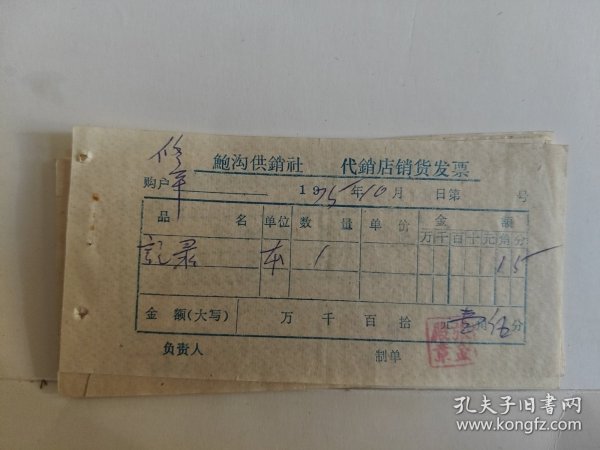 鮑沟供銷社 代銷店销货发票
购户 修車 1975年10月 日第 号
品 名 单位 数 量 单 价 金 额
万 千 百 十 元 角 分
記录 本 1 1 5
金 额(大写) 万 千 百 拾 壹角伍分
负责人 制单
孔夫子旧书网
www.kongfz.com